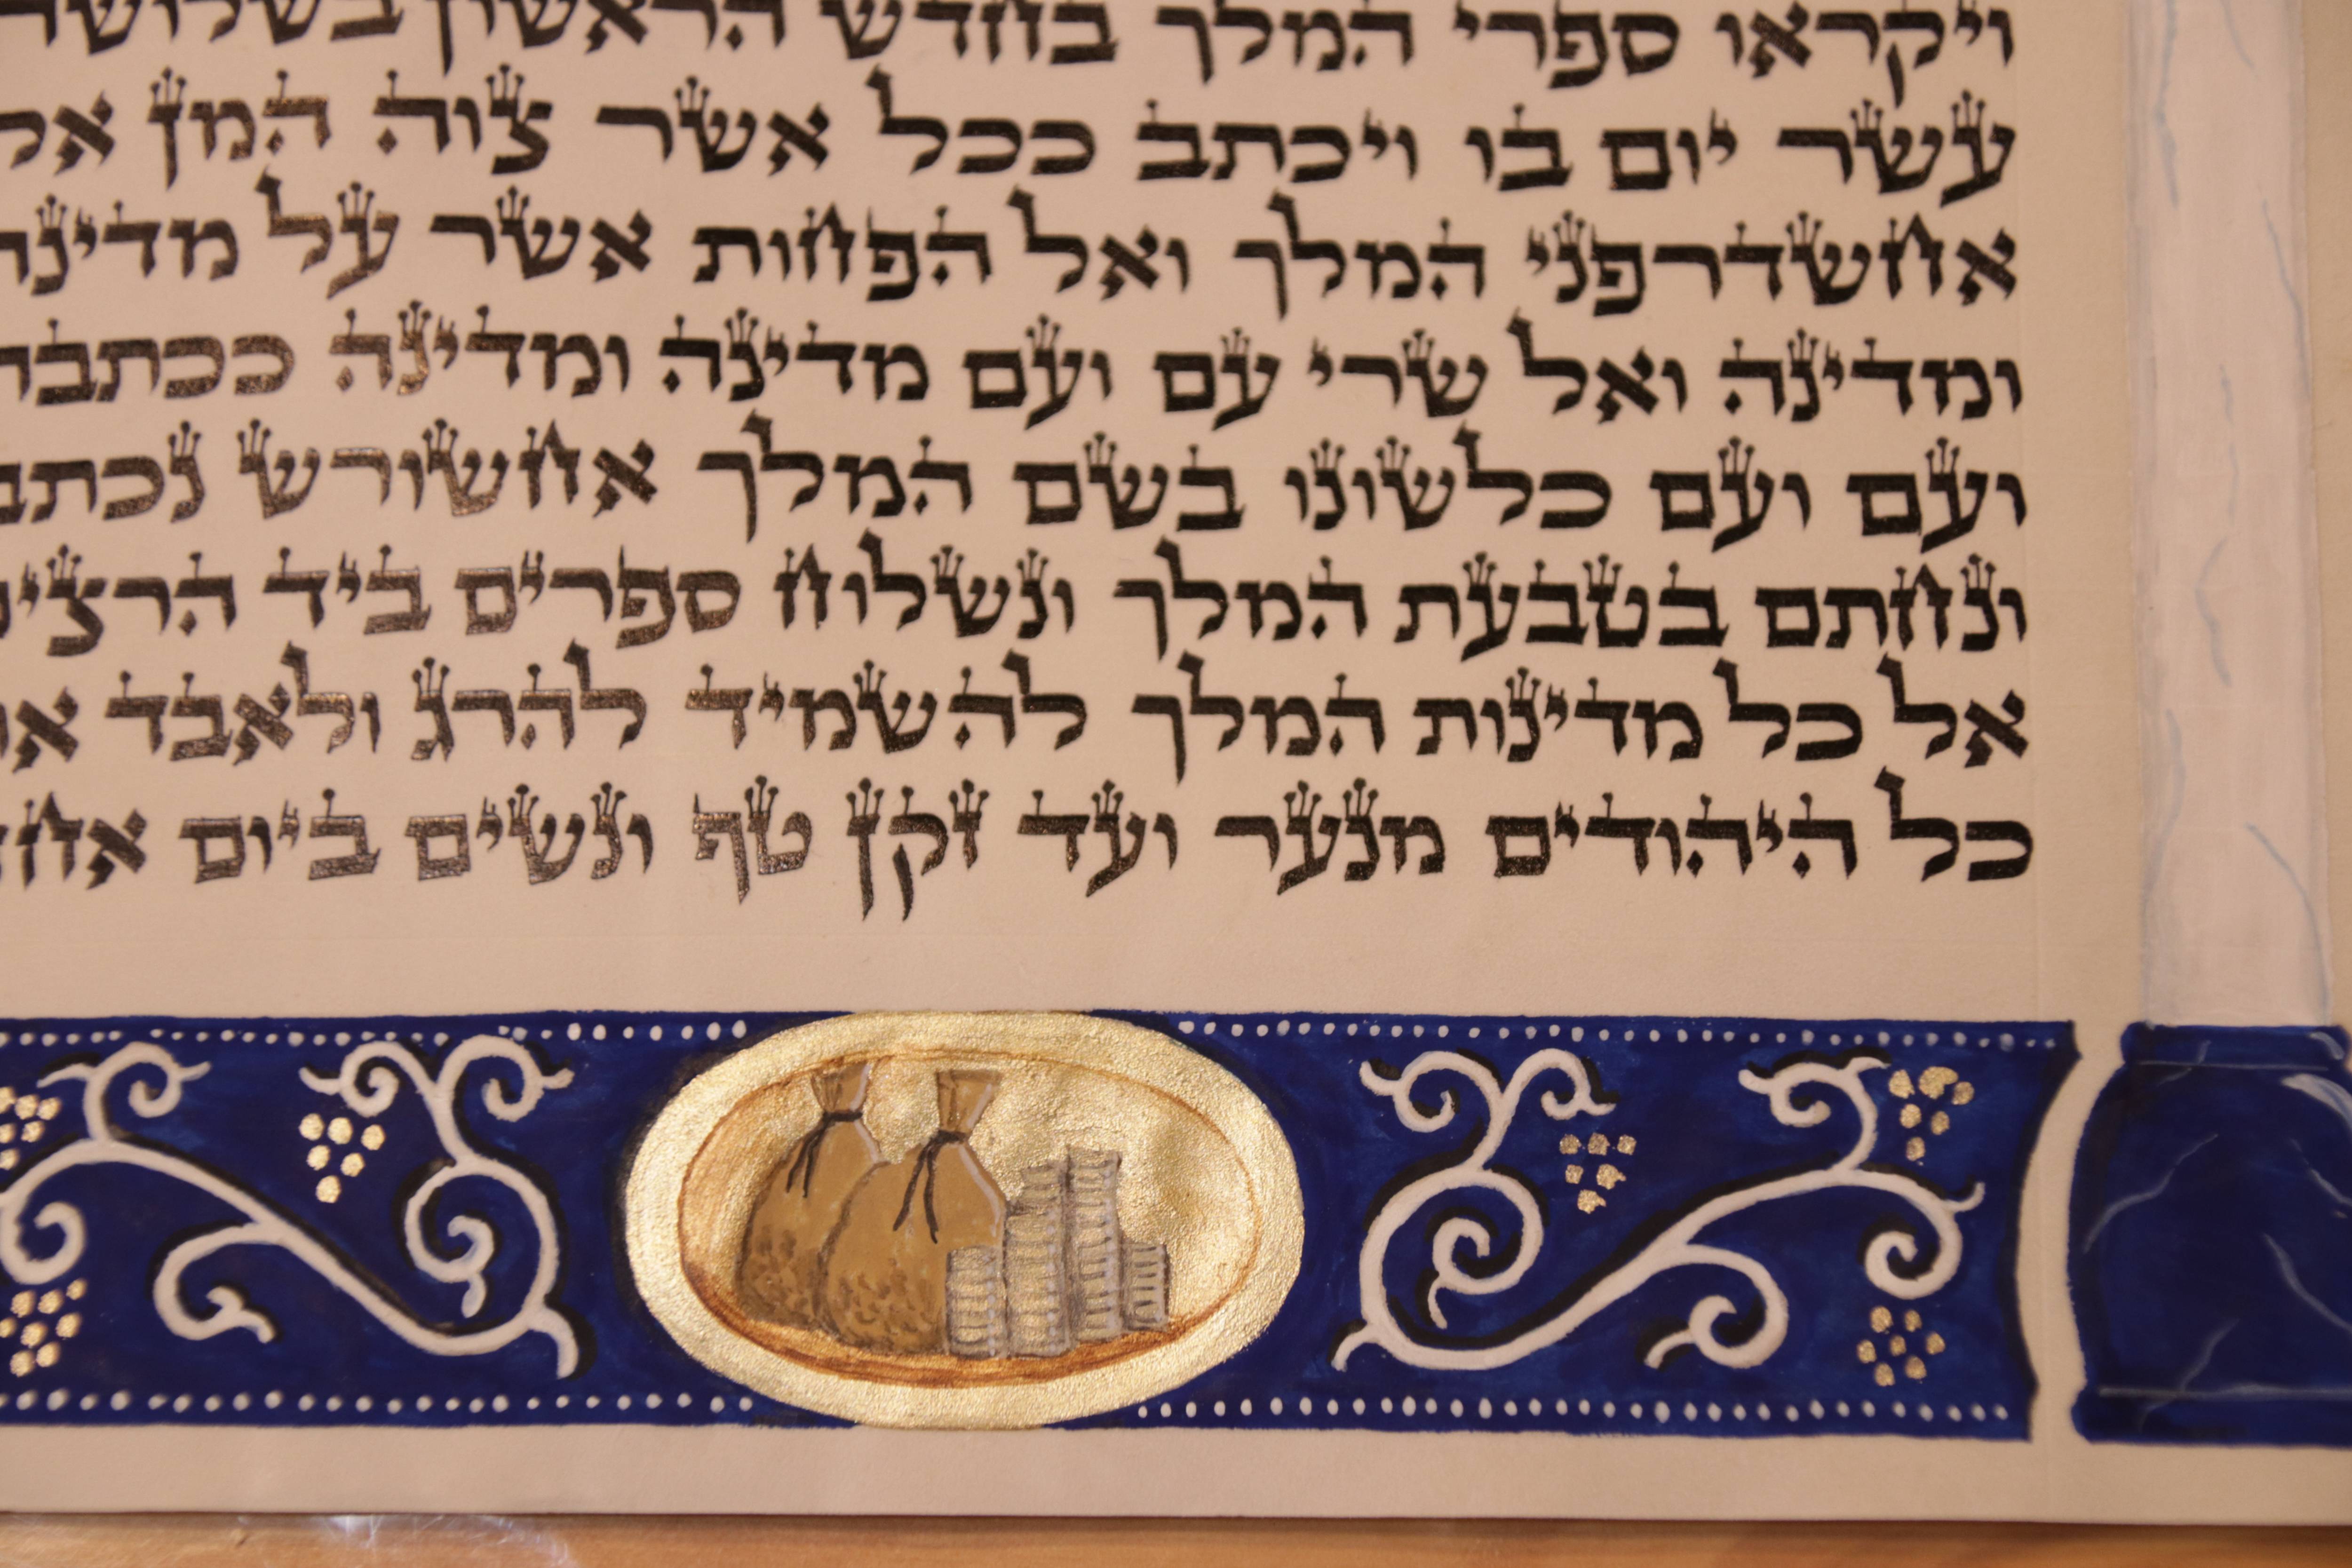 ויקראו ספרי המלך בחדש הראשון בשלושה
עשר יום בו ויכתב ככל אשר צוה המן אל
אחשדרפני המלך ואל הפחות אשר על מדינה
ומדינה ואל שרי עם ועם מדינה ומדינה ככתבה
ועם ועם כלשונו בשם המלך אחשורש נכתב
ונחתם בטבעת המלך ונשלוח ספרים ביד הרצים
אל כל מדינות המלך להשמיד להרג ולאבד את
כל היהודים מנער ועד זקן טף ונשים ביום אחד